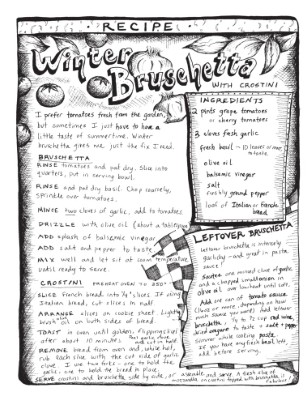 RECIPE
Winter
Bruschetta
WITH CROSTINI
I prefer tomatoes fresh from the garden,
but sometimes I just have to have a
little taste of summertime. Winter
bruschetta gives me just the fix I need.
BRUSCHETTA
RINSE tomatoes and pat dry. Slice into
quarters, put in serving bowl.
RINSE and pat dry basil. Chop coarsely,
sprinkle over tomatoes.
MINCE two cloves of garlic, add to tomatoes.
DRIZZLE with olive oil (about a tablespoon)
ADD splash of balsamic vinegar
ADD salt and pepper to taste
MIX well and let sit at room temperature
until ready to serve.
CROSTINI PREHEAT OVEN TO 350°
SLICE french bread into ¾" slices. If using
Italian bread, cut slices in half
ARRANGE slices on cookie sheet. Lightly
brush oil on both sides of bread.
TOAST in oven until golden, flipping slices
after about 10 minutes.
REMOVE bread from oven and, while hot,
rub each slice with the cut side of garlic
clove. I use two forks - one to hold the
garlic, one to hold the bread in place.
SERVE crostini and bruschetta side by side, or
assemble and serve.
INGREDIENTS
2 pints grape tomatoes
or cherry tomatoes
3 cloves fresh garlic
fresh basil
olive oil
balsamic vinegar
salt
freshly ground pepper
loaf of Italian or french
bread
LEFTOVER BRUSCHETTA
Leftover bruschetta is intensely
garlicky - and great in pasta
sauce!
Sauteé one minced clove of garlic
and a chopped small onion in
olive oil over low heat until soft.
Add one can of tomato sauce.
(Two or more, depending on how
much sauce you want) Add leftover
bruschetta, ¼ to ½ cup red wine,
dried oregano to taste + salt + pepper.
Simmer while making pasta.
If you have any fresh basil left,
add before serving.